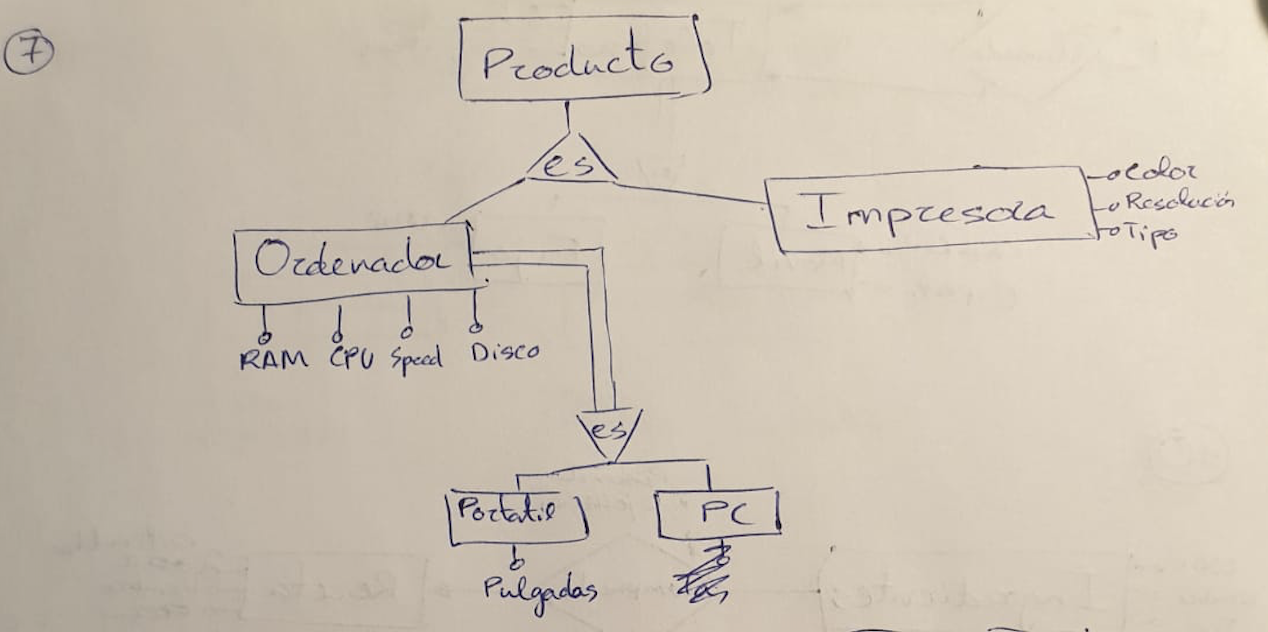 7
Producto
es
Impresora
Color
Resolución
Tipo
Ordenador
RAM CPU Speed Disco
es
Portatil PC
Pulgadas